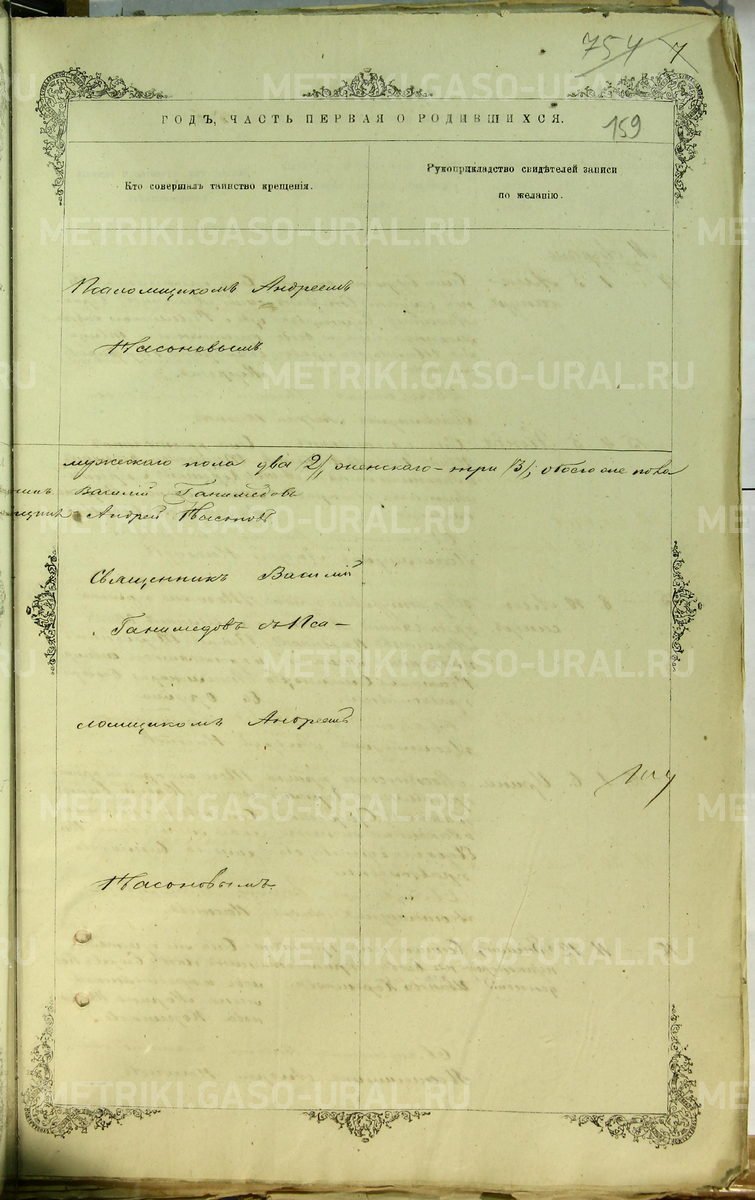 754 7
159
ГОДЪ, ЧАСТЬ ПЕРВАЯ О РОДИВШИХСЯ.
Кто совершалъ таинство крещенія.
Рукоприкладство свидѣтелей записи
по желанію.
Псаломщикомъ Андреемъ
Насоновымъ
мужескаго пола два /2/, женскаго – три /3/, обоего пола
Василій Ганимедовъ
Андрей Насоновъ
Священникъ Василій
Ганимедовъ съ Пса-
ломщикомъ Андреемъ
Насоновымъ
METRIKI.GASO-URAL.RU